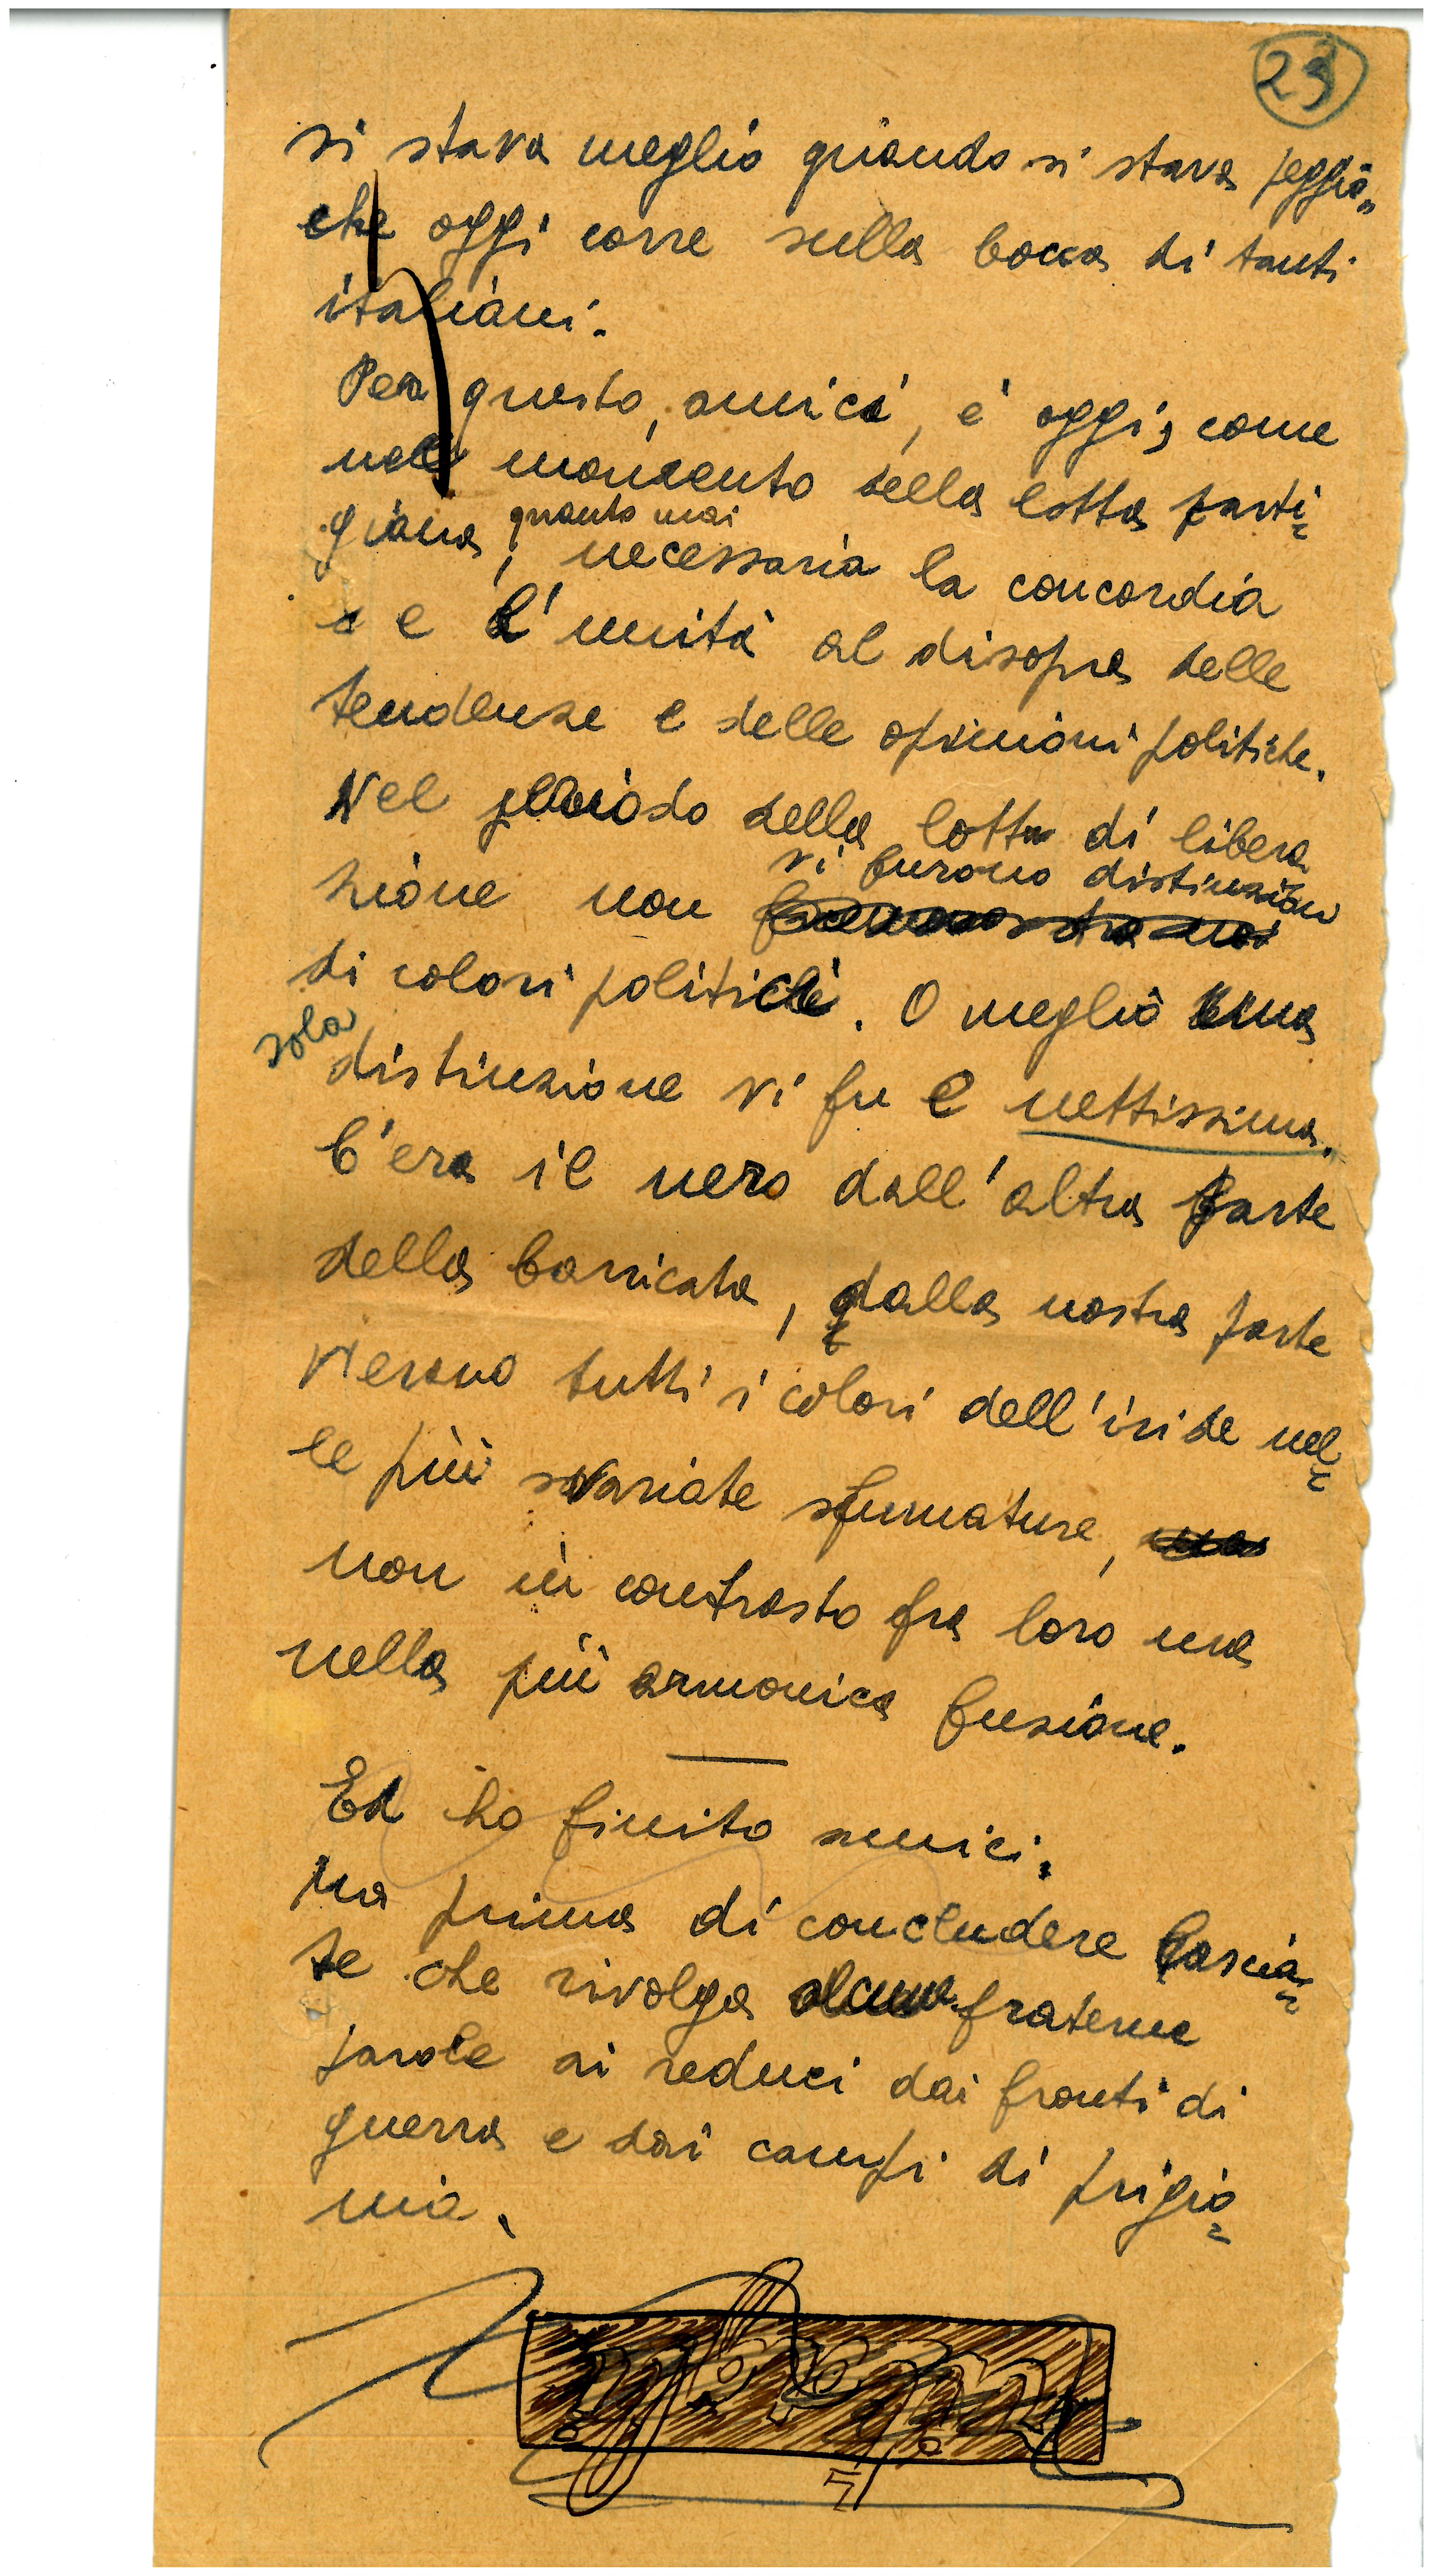 23
si stava meglio quando si stava peggio„
che oggi corre sulla bocca di tanti
italiani.
Per questo, amici, è oggi, come
nel momento della lotta parti=
giana, quanto mai necessaria la concordia
e l'unità al disopra delle
tendenze e delle opinioni politiche.
Nel periodo della lotta di libera
zione non vi furono distinzioni
di colori politici. O meglio una
sola
distinzione vi fu e nettissima.
C'era il nero dall'altra parte
della barricata, dalla nostra parte
v'erano tutti i colori dell'iride nel=
le più svariate sfumature, ma
non in contrasto fra loro ma
nella più armonica fusione.
Ed ho finito amici.
Ma prima di concludere lascia=
te che rivolga alcune fraterne
parole ai reduci dai fronti di
guerra e dai campi di prigio=
nia.